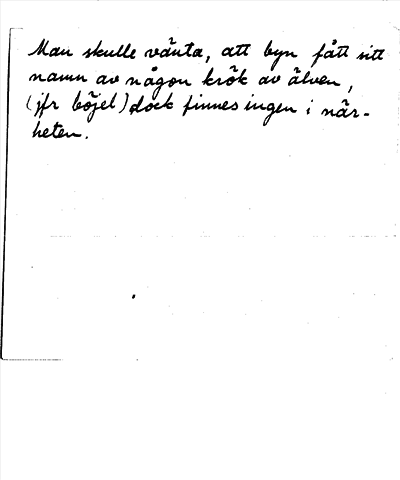 Man skulle vänta, att byn fått sitt
namn av någon krök av älven,
(jfr böjel) dock finnes ingen i när-
heten.